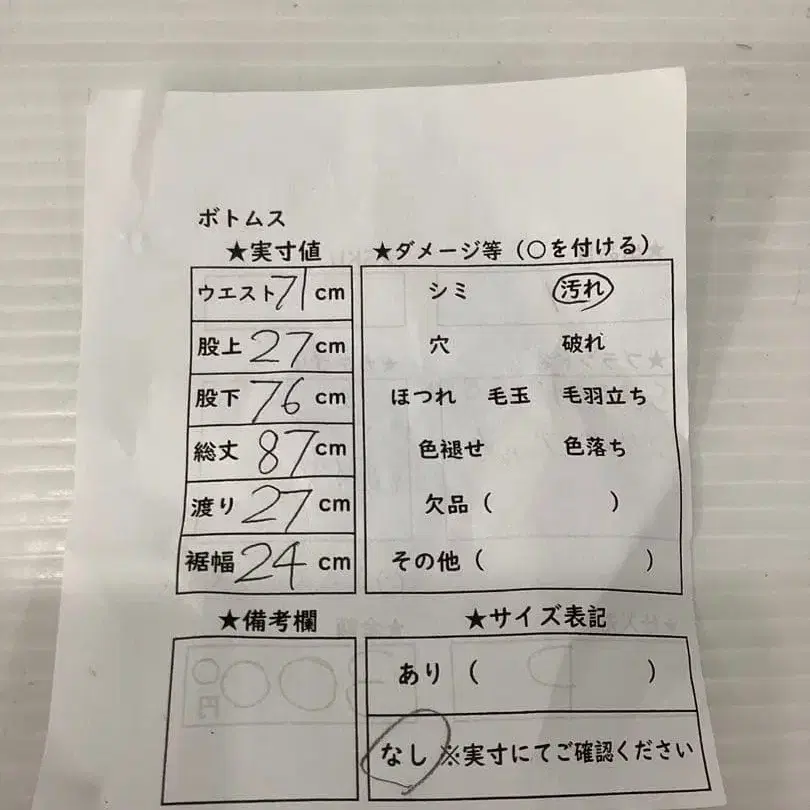 ボトムス
★実寸値
ウエスト71cm
股上27cm
股下76cm
総丈87cm
渡り27cm
裾幅24cm
★ダメージ等（○を付ける）
シミ 汚れ
穴 破れ
ほつれ 毛玉 毛羽立ち
色褪せ 色落ち
欠品（ ）
その他（ ）
★備考欄
★サイズ表記
あり（ ）
なし ※実寸にてご確認ください